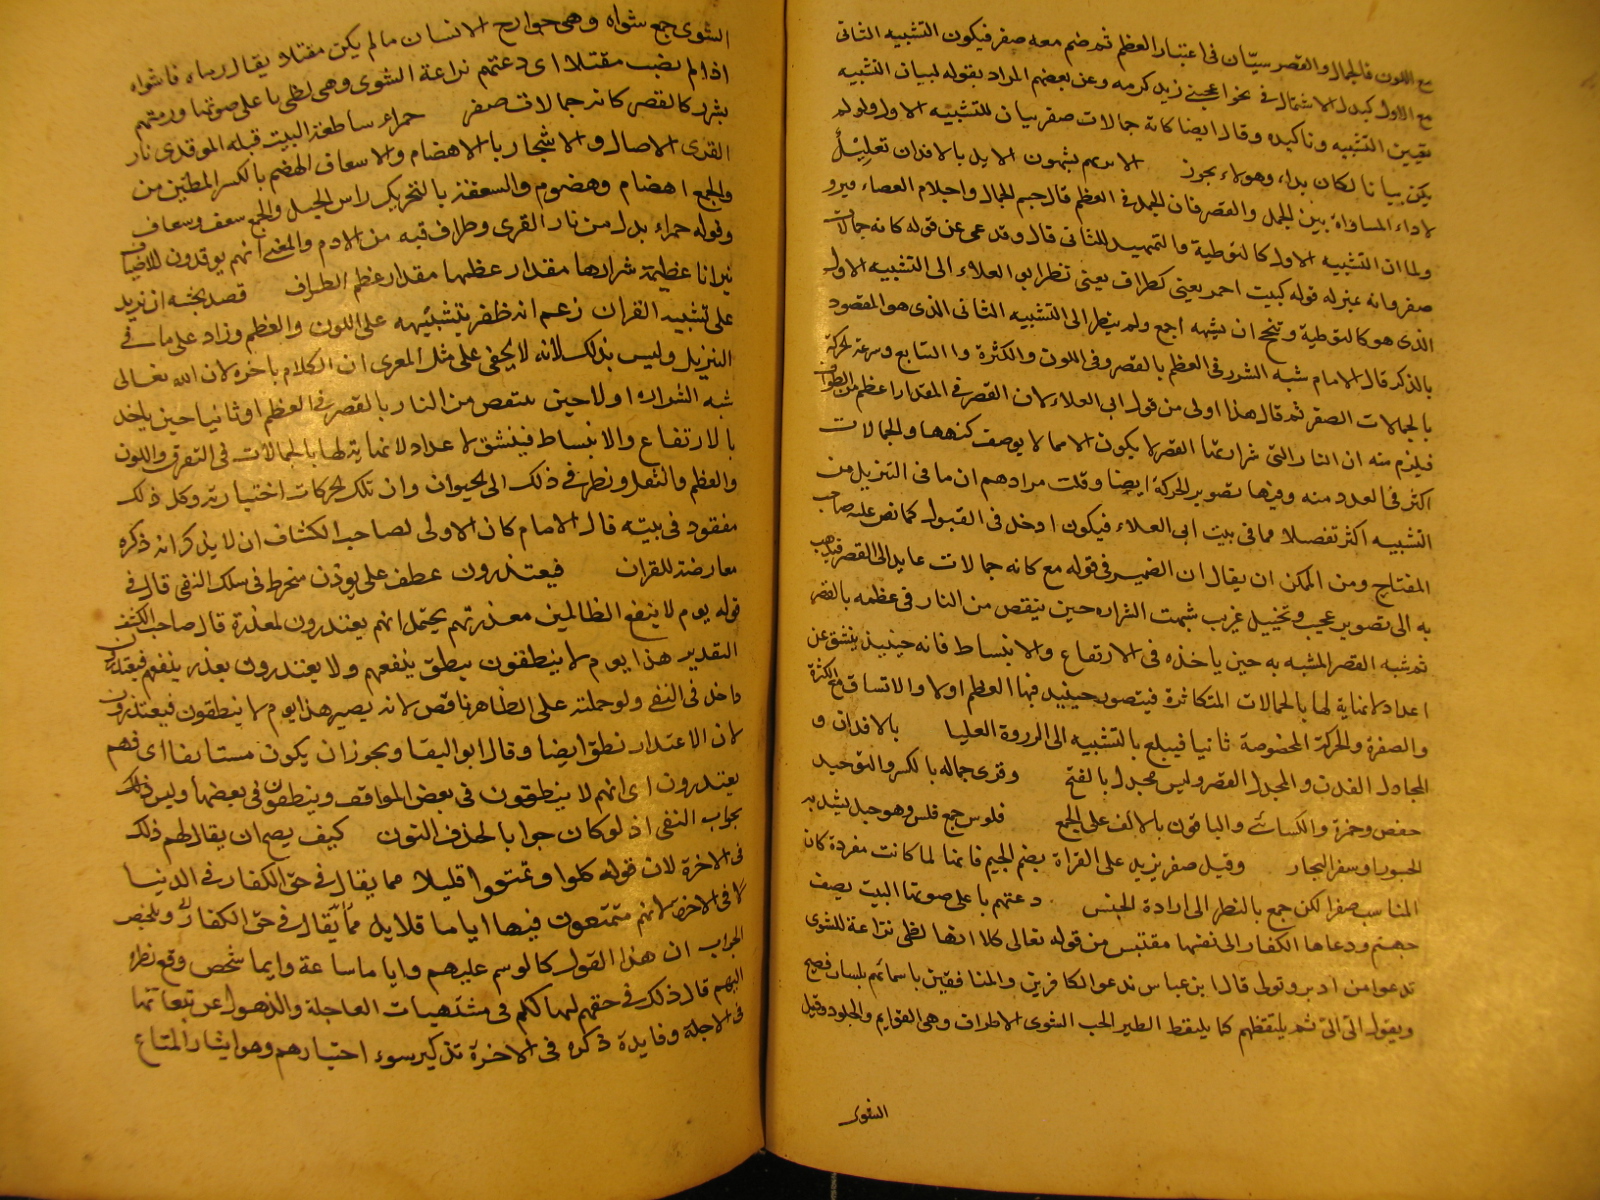 مع اللون فالجمال والقصر سيّان في اعتبار العظم ثم ضم معه صفر فيكون التشبيه الثاني
مع الاول كبدل الاشتمال في نحو اعجبني زيد كرمه وعن بعضهم المراد بقوله لبيان التشبيه
تعيين التشبيه وتاكيده وقال ايضا كانه جمالات صفر بيان للتشبيه الاول ولو لم
يكن بيانا لكان بداء وهو لا يجوز الا يريهم يشبهون الابل بالافدان تعليل
لاداء المساواة بين الجمل والقصر فان الجمل في العظم قال جسم الجمال واحلام العصافير و
ولما ان التشبيه الاول كالتوطية والتمهيد للثاني قال وقد عمي عن قوله كانه جمالات
صفر وانه بمنزلة قوله كبيت احمر يعني كطراف يعني نظر ابي العلاء الى التشبيه الاول
الذي هو كالتوطية وتبجح ان يشبهه اجمع ولم ينظر الى التشبيه الثاني الذي هو المقصود
بالذكر قال الامام شبه الشرر في العظم بالقصر وفي اللون والكثرة والتتابع وسرعة الحركة
بالجمالات الصفر ثم قال هذا اولى من قول ابي العلاء لان القصر في المقدار اعظم من الطراف
فيلزم منه ان النار التي شرارتها القصر لا يكون الا مما لا يوصف كنهها والجمالات
اكثر في العدد منه وفيها تصوير الحركة ايضا وقلت مرادهم ان ما في التنزيل من
التشبيه اكثر تفصيلا مما في بيت ابي العلاء فيكون ادخل في القبول كما نص عليه صاحب
المفتاح ومن الممكن ان يقال ان الضمير في قوله مع كانه جمالات عايد الى القصر فيذهب
به الى تصوير عجيب وتخييل غريب شبهت الشراره حين ينقص من النار في عظمه بالقصر
ثم شبه القصر المشبه به حين ياخذه في الارتفاع والانبساط فانه حينيذ ينشق عن
اعداد لا نهاية لها بالجمالات المتكاثرة فيتصور حينيد فيها العظم اولا والاتساق مع الكثرة
والصفرة والحركة المخصوصة ثانيا فيبلغ بالتشبيه الى الذروة العليا بالافدان و
المجادل الفدن والمجدل القصر وليس مجدل بالفتح وقرى جماله بالكسر والتوحيد
حفص وحمزة والكسائي والباقون بالالف على الجمع قلوس جمع قلس وهو حبل يشد به
الجسور او سفن البحار وقيل صفر يزيد على القراة بضم الجيم فانها لما كانت مفردة كان
المناسب صفرا لكن جمع بالنظر الى ارادة الجنس دعتهم باعلى صوتها البيت يصف
جهنم ودعاها الكفار الى نفسها مقتبس من قوله تعالى كلا انها لظى نزاعة للشوى
تدعوا من ادبر وتولى قال ابن عباس تدعو الكافرين والمنافقين باسمائهم بلسان فصيح
ويقول الي الي ثم يلتقطهم كما يلتقط الطير الحب الشوى الاطراف وهي القوايم والجلود وقيل
الشوى
الشوى جمع شواه وهي جوارح الانسان مالم يكن مقتلا يقال رماه فاشواه
اذا لم يصب مقتلا اي دعتهم نزاعة الشوى وهي لظى باعلى صوتها ورمتهم
بشرر كالقصر كانه جمالات صفر حمراء ساطعة البيت قبله الموقدي نار
القرى الاصال والاشجار بالاهضام والاسعاف الهضم بالكسر المطئن من
والجمع اهضام وهضوم والسعفة بالتحريك راس الجبل والجمع سعف وسعاف
وقوله حمراء بدل من نار القرى وطراف قبه من الادم والمعنى انهم يوقدون للاضياف
نيرانا عظيمة شرارها مقدار عظمها مقدار عظم الطراف قصد بخبثه ان يزيد
على تشبيه القران زعم انه ظفر بتشبيهه على اللون والعظم وزاد على ما في
التنزيل وليس بذلك لانه لا يخفى على مثل المعري ان الكلام باخره لان الله تعالى
شبه الشراره اولا حين ينتقص من النار بالقصر في العظم او ثانيا حين ياخذ
بالارتفاع والانبساط فينشق لاعداد لا نهاية لها بالجمالات في التفرق واللون
والعظم والثقل ونظر في ذلك الى الحيوان وان تلك الحركات اختيارية وكل ذلك
مفقود في بيته قال الامام كان الاولى لصاحب الكشاف ان لا يذكر انه ذكره
معارضة للقران فيعتذرون عطف على يوذن منخرط في سلك النفي قال في
قوله يوم لا ينفع الظالمين معذرتهم يحتمل انهم يعتذرون لمعذرة قال صاحب الكشف
التقدير هذا يوم لا ينطقون بنطق ينفعهم ولا يعتذرون بعذر ينفعهم فيعتذرون
داخل في النفي ولو حملته على الظاهر ناقص لانه يصير هذا يوم لا ينطقون فيعتذرون
لان الاعتذار نطق ايضا وقال ابو البقا ويجوز ان يكون مستانفا اي فهم
يعتذرون اي انهم لا ينطقون في بعض المواقف وينطقون في بعضها وليس ذلك
بجواب النفي اذ لو كان جوابا لحذف النون كيف يصح ان يقال لهم ذلك
في الاخرة لان قوله كلوا وتمتعوا قليلا مما يقال في حق الكفار في الدنيا
لا في الاخرة لانهم متمتعون فيها اياما قلايل مما يقال في حق الكفار وتلخيص
الجواب ان هذا القول كالوسم عليهم واياما ساعة وايما شخص وقع نظره
اليهم قال ذلك في حقهم لهالكهم في مشتهيات العاجلة والذهول عن تبعاتها
في الاجلة وفايدة ذكره في الاخرة تذكير سوء اختيارهم وهو ايثار المتاع